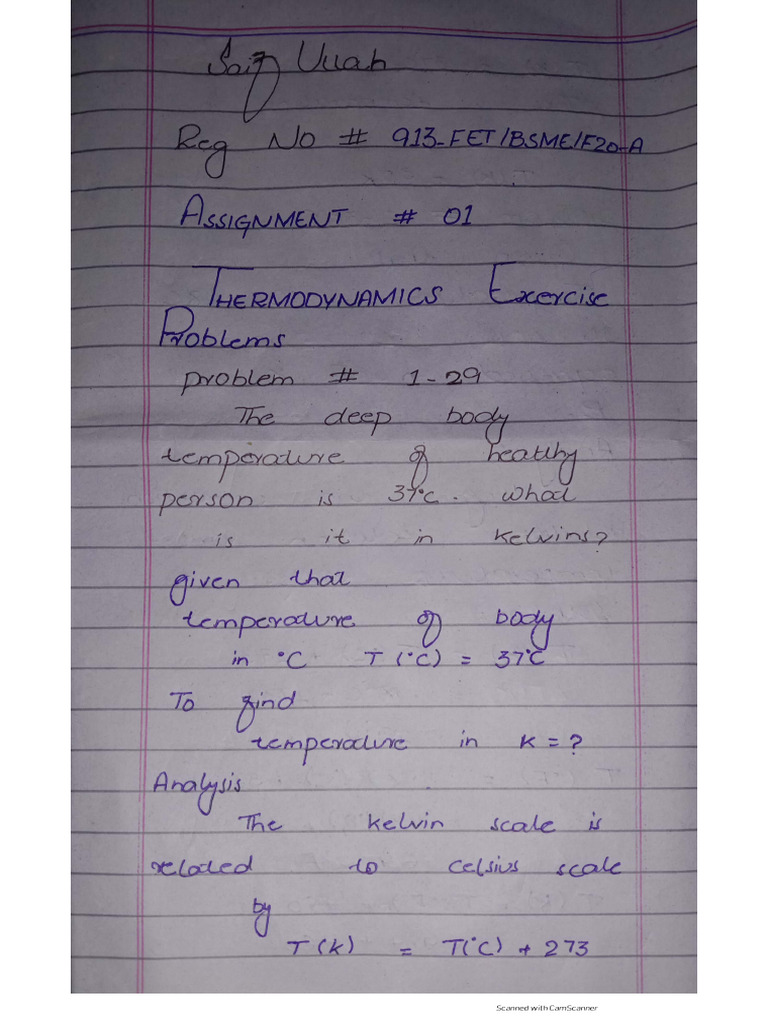 Saif Ullah
Reg No # 913-FET/BSME/F20-A
ASSIGNMENT # 01
THERMODYNAMICS Exercise
Problems
problem # 1-29
The deep body
temperature of healthy
person is 37°C. what
is it in Kelvins?
given that
temperature of body
in °C T(°C) = 37°C
To find
temperature in K = ?
Analysis
The kelvin scale is
related to celsius scale
by
T(k) = T(°C) + 273
Scanned with CamScanner